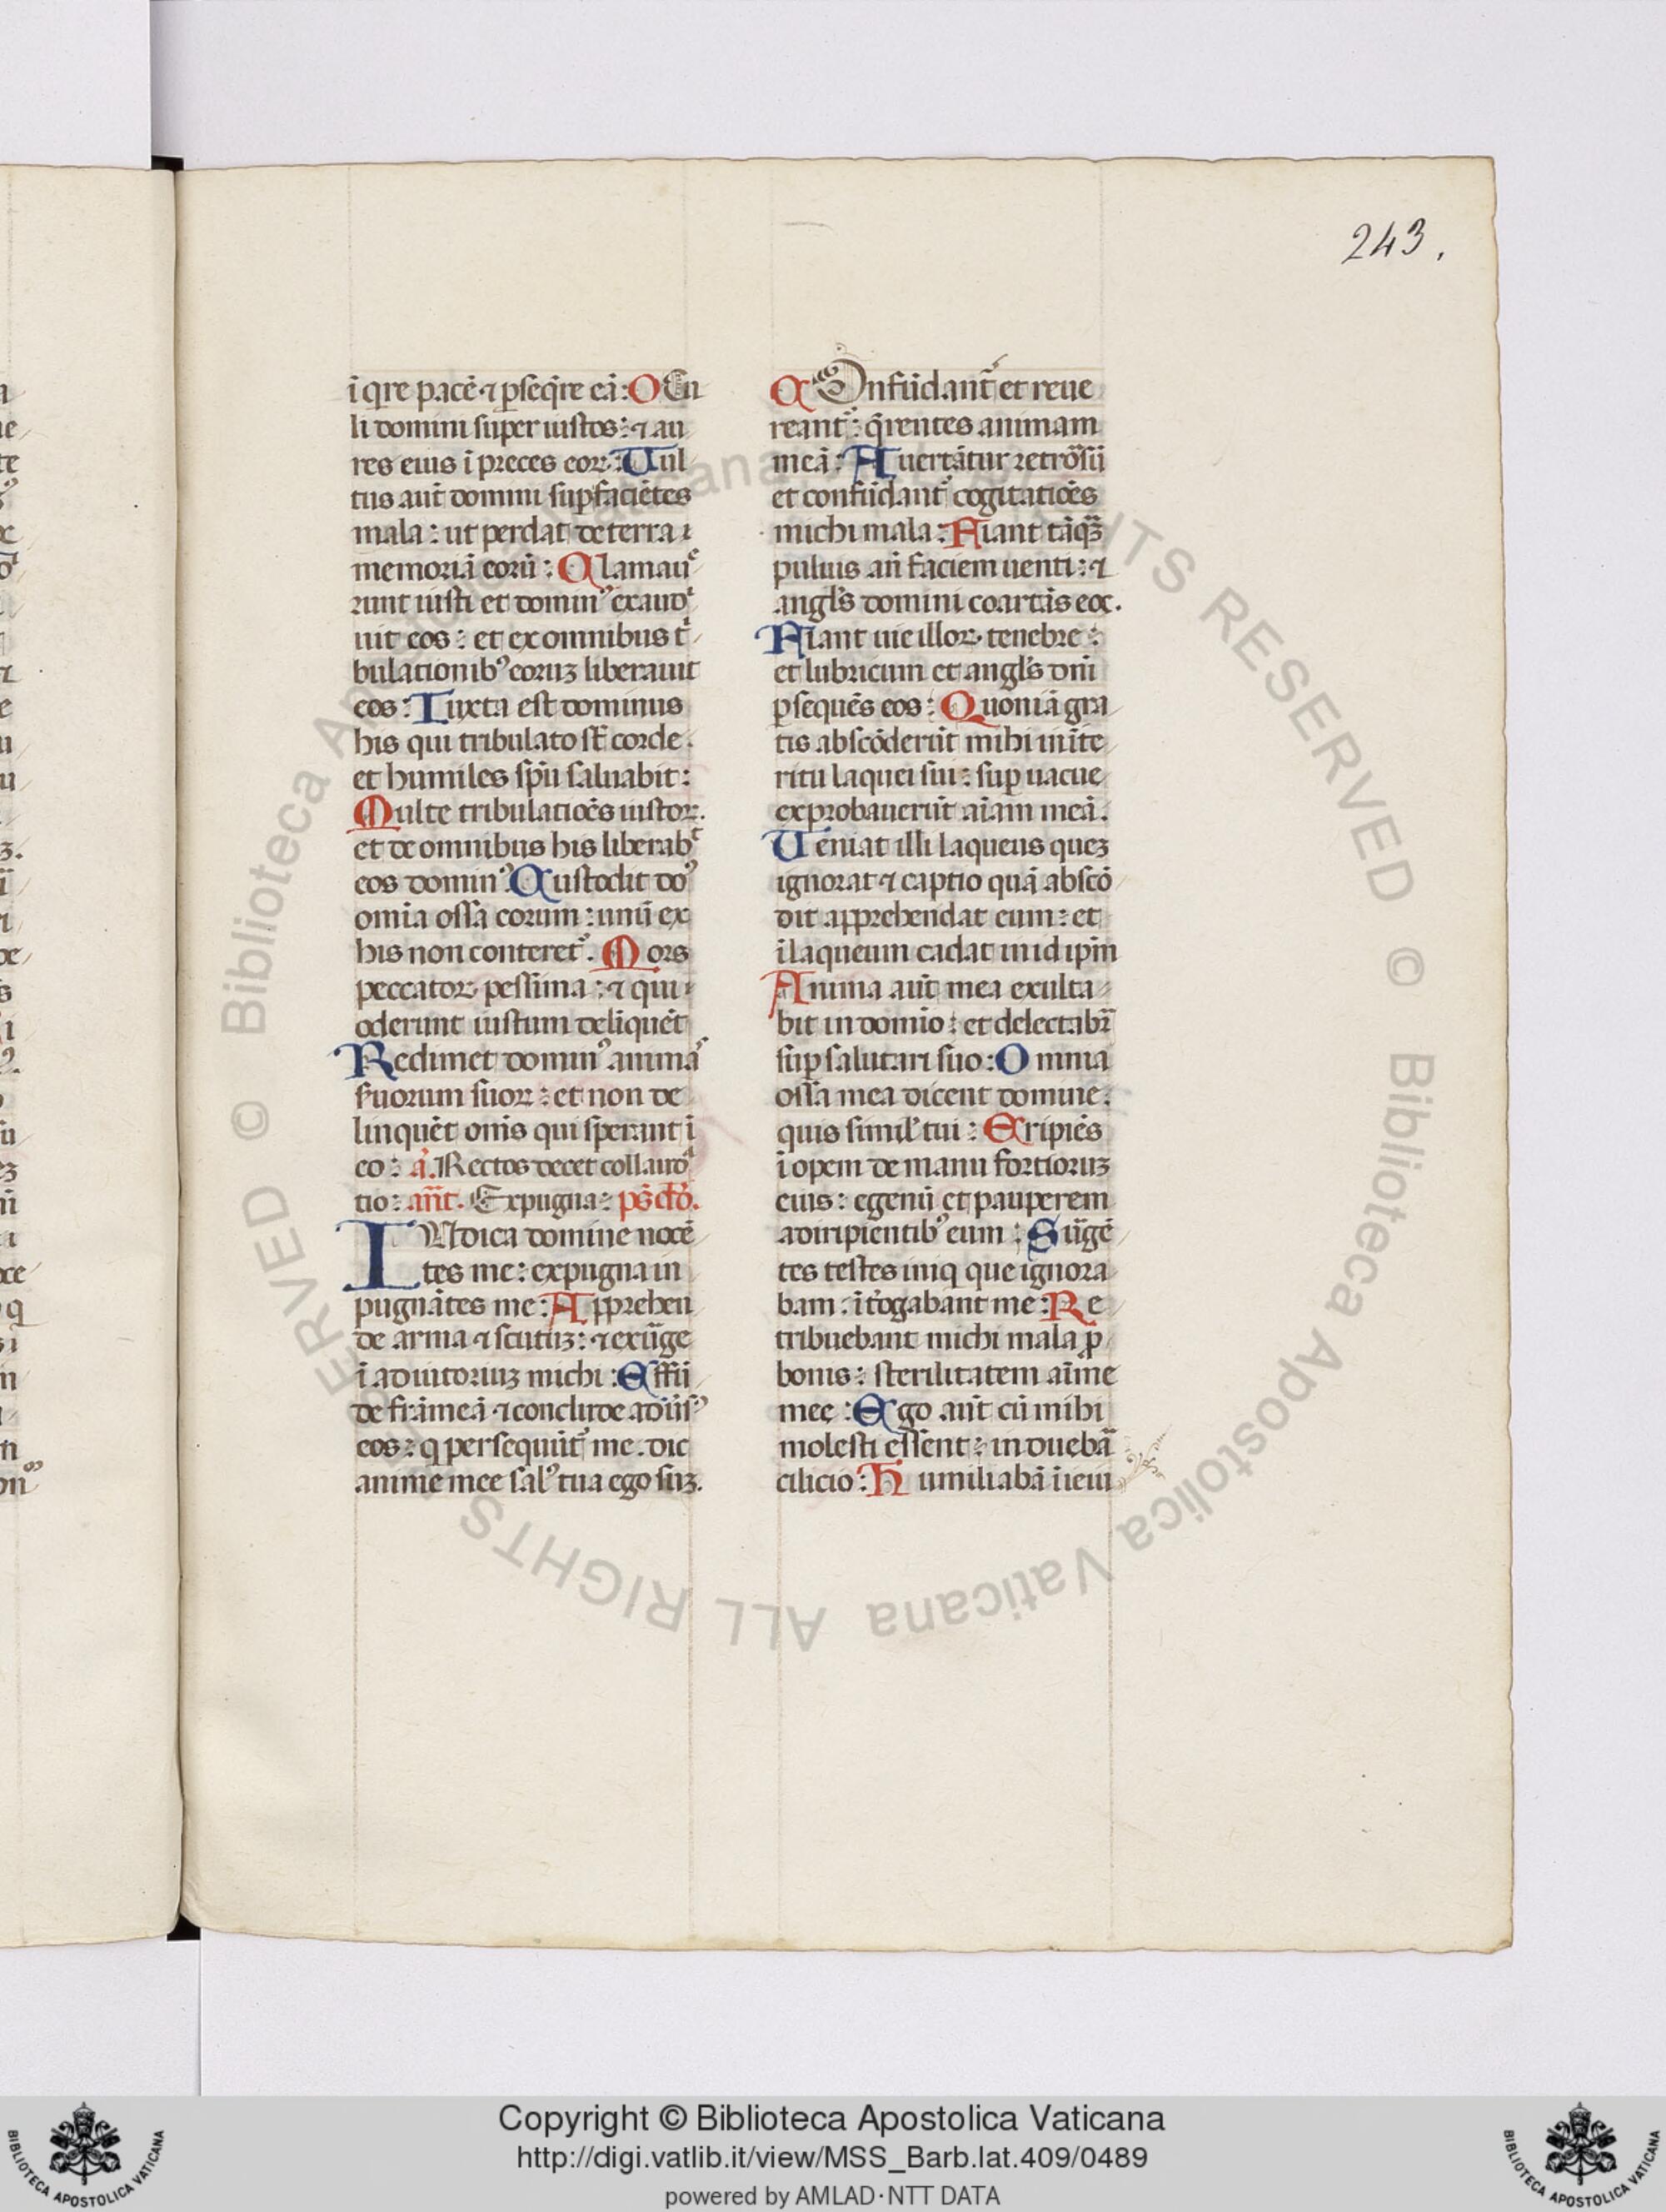 243.
īqre pacē ⁊ ꝑseq̄re eā: O Cu
li domini super iustos: ⁊ au
res eius ī preces eoꝝ: Uul
tus aut̄ domini suꝑ faciētes
mala: ut perdat de terra
memoriā eorū: Clamaue
runt iusti et dominꝰ exaudi
uit eos: et ex omnibus tⁱ
bulationibꝰ eoruꝫ liberauit
eos: Iuxta est dominus
his qui tribulato sūt corde.
et humiles sp̄u saluabit:
Multe tribulatiōes iustoꝝ.
et de omnibus his liberabᵗ
eos dominꝰ: Custodit doꝰ
omīa ossa eorum: unū ex
his non conteret᷑. Mors
peccatoꝝ pessima: ⁊ qui
oderunt iustum deliquēt
Redimet dominꝰ animaˢ
suorum suoꝝ: et non de
linquēt om̄s qui sperant ī
eo: a᷑. Rectos decet collaudᵃ
tio: an̄t. Expugna: ps̄ dd̄.
INdica domine nocē
tes me: expugna in
pugnātes me: Apprehen
de arma ⁊ scutuꝫ: ⁊ exurge
ī adiutoriuꝫ michi: Effū
de frāmeā ⁊ conclude aduersꝰ
eos: q persequūt᷑ me. dic
anime mee salꝰ tua ego suꝫ.
COnfūdant᷑ et reue
reant᷑: q̄rentes animam
meā: Auertātur retrosū
et confūdant᷑ cogitatiōes
michi mala: Fiant tāqꝫ
puluis an̄ faciem uenti: ⁊
angl̄s domini coartās eoc.
Fiant uie illoꝝ tenebre:
et lubricum et angl̄s dn̄i
ꝑsequēs eos: Quoniā gra
tis abscōderūt mihi inīte
ritū laquei sui: suꝑ uacue
exprobauerūt aīam meā.
Ueniat illi laqueus queꝫ
ignorat ⁊ captio quā abscō
dit apprehendat eum: et
ī laqueum cadat in id ip̄m
Anima aut̄ mea exulta
bit in domīo: et delectabr̄
suꝑ salutari suo: Omnia
ossa mea dicent domine.
quis simil᷑ tui: Eripiēs
ī opem de manu fortioruꝫ
eius: egenū et pauperem
adiripientibꝰ eum: Surgē
tes testes iniq que ignora
bam. īt̄ogabant me: Re
tribuebant michi mala ꝓ
bonis: sterilitatem aīme
mee: Ego aut̄ cū mihi
molesti essent: induebā
cilicio: Humiliabā ī ieiu
Copyright © Biblioteca Apostolica Vaticana
http://digi.vatlib.it/view/MSS_Barb.lat.409/0489
powered by AMLAD·NTT DATA
© Biblioteca Apostolica Vaticana ALL RIGHTS RESERVED
© Biblioteca Apostolica Vaticana ALL RIGHTS RESERVED
BIBLIOTECA APOSTOLICA VATICANA
BIBLIOTECA APOSTOLICA VATICANA